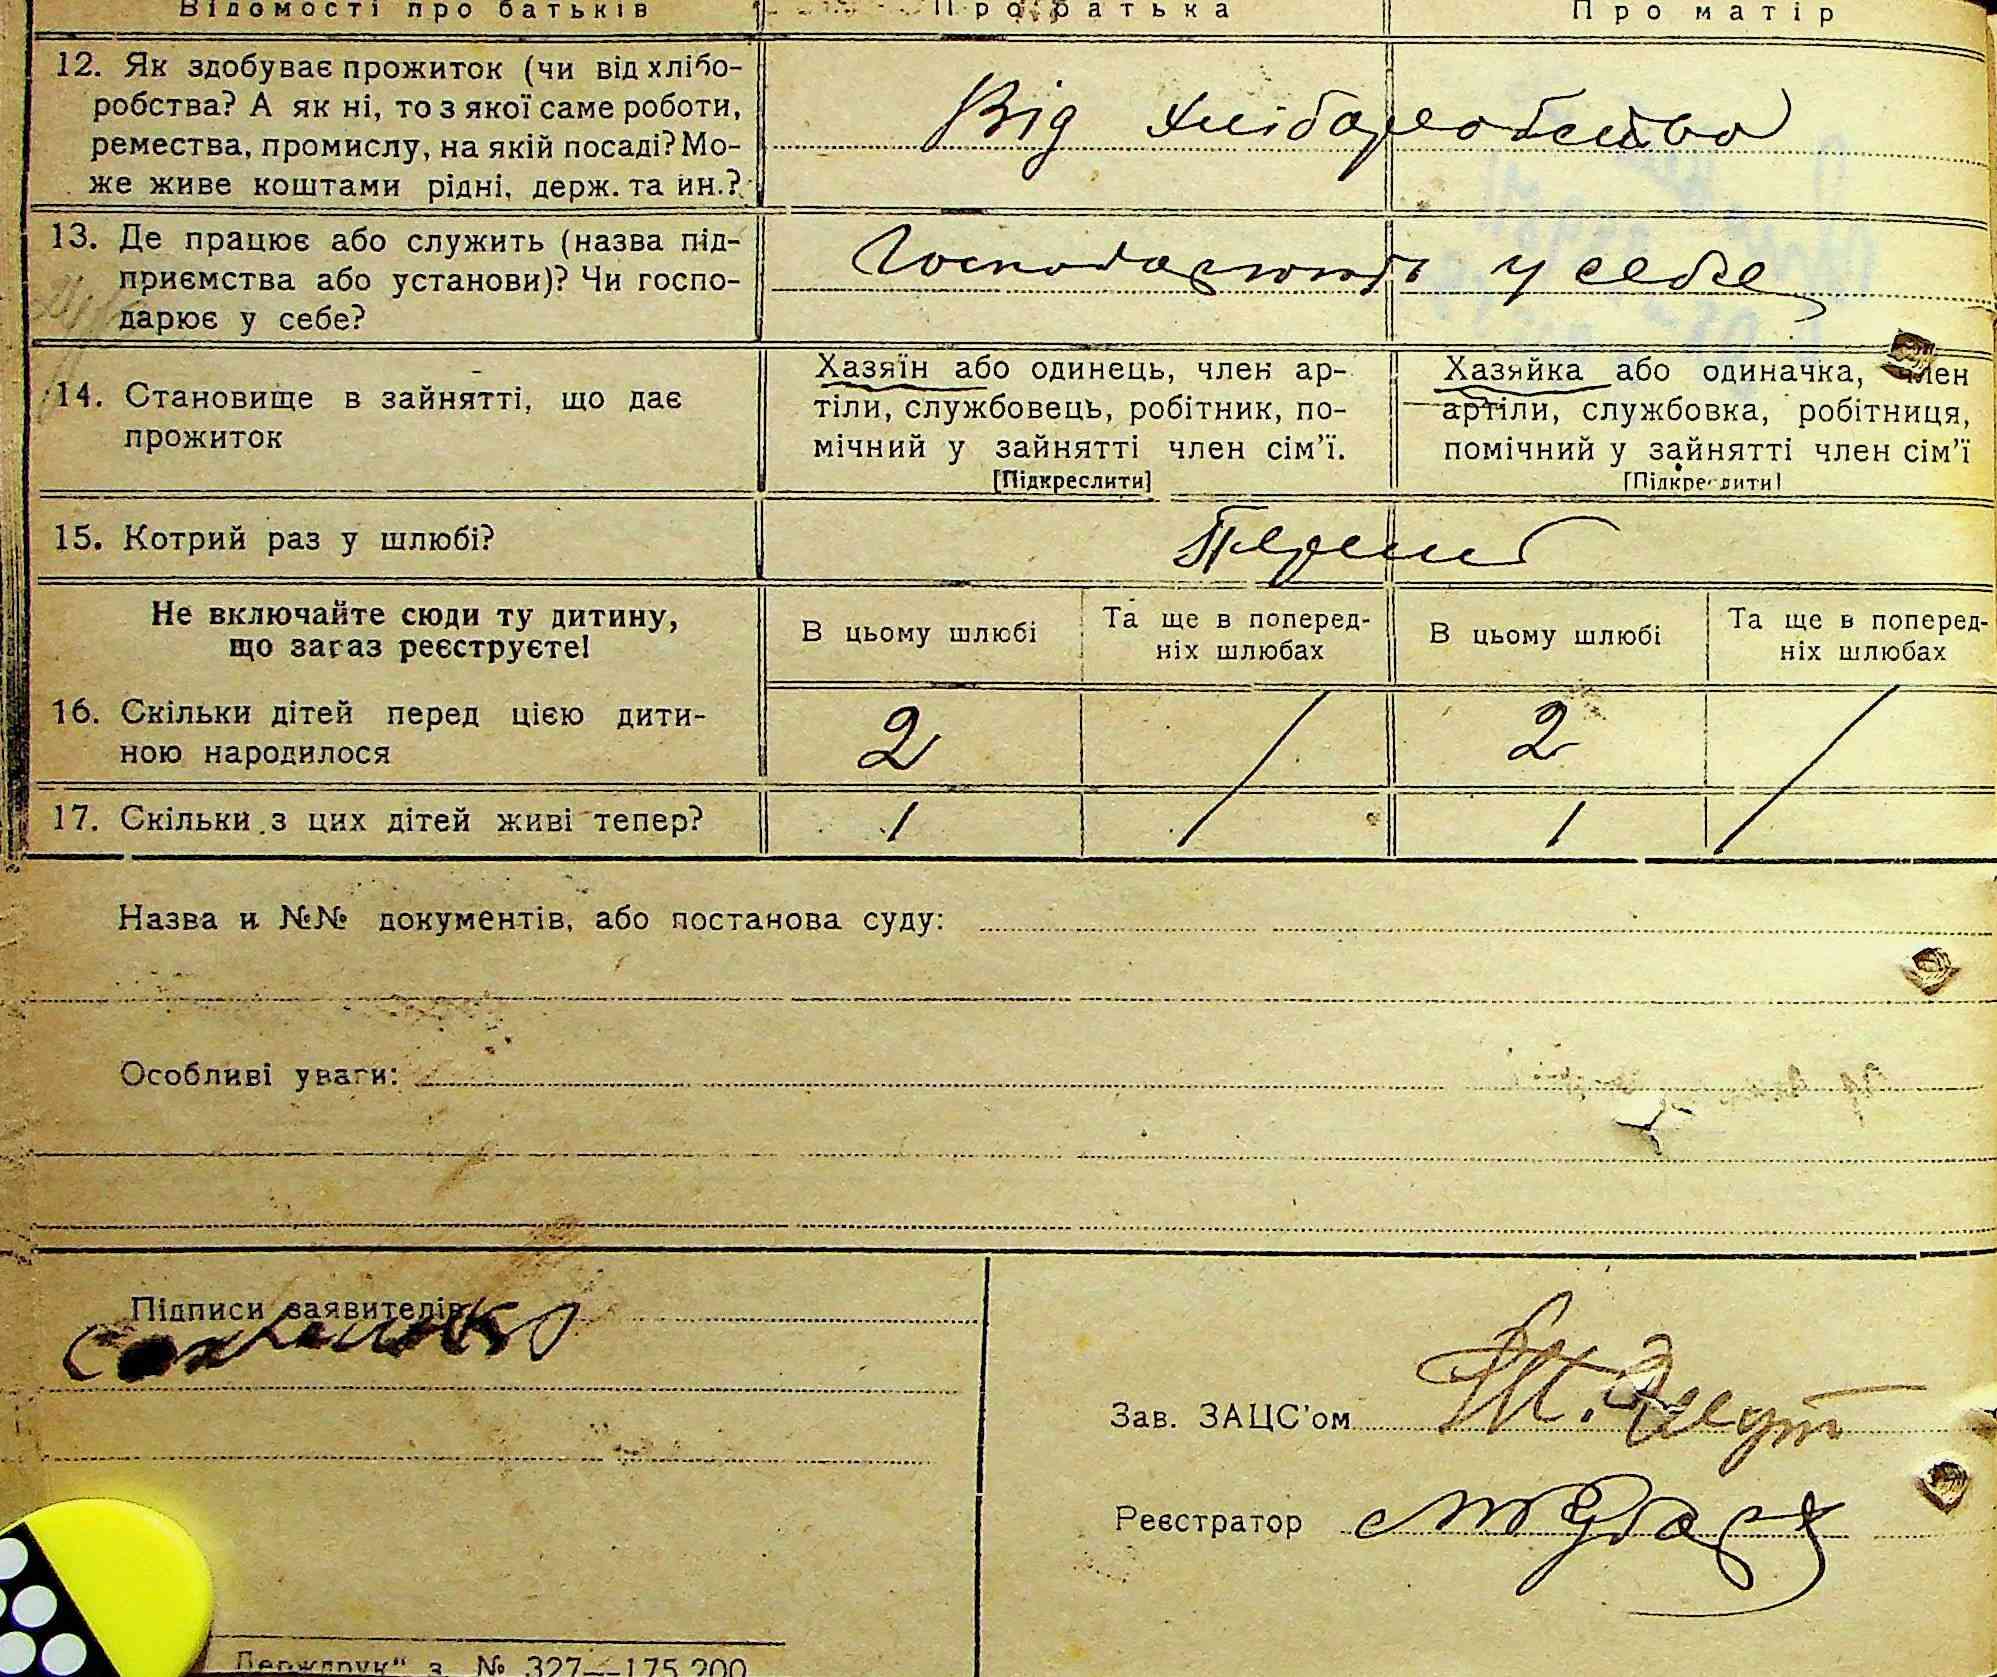 Відомості про батьків Про батька Про матір
12. Як здобуває прожиток (чи від хлібо-
робства? А як ні, то з якої саме роботи,
ремества, промислу, на якій посаді? Мо-
же живе коштами рідні, держ. та ин.?
Від хліборобства
13. Де працює або служить (назва під-
приємства або установи)? Чи госпо-
дарює у себе?
Господарюють у себе
14. Становище в зайнятті, що дає
прожиток
Хазяїн або одинець, член ар-
тіли, службовець, робітник, по-
мічний у зайнятті член сім'ї.
[Підкреслити]
Хазяйка або одиначка, член
артіли, службовка, робітниця,
помічний у зайнятті член сім'ї
[Підкреслити]
15. Котрий раз у шлюбі?
Перший
Не включайте сюди ту дитину,
що зараз реєструєте!
В цьому шлюбі
Та ще в поперед-
ніх шлюбах
В цьому шлюбі
Та ще в поперед-
ніх шлюбах
16. Скільки дітей перед цією дити-
ною народилося
2 / 2 /
17. Скільки з цих дітей живі тепер?
1 1
Назва и №№ документів, або постанова суду:
Особливі уваги:
Підписи заявителів
Зав. ЗАЦС'ом
Реєстратор
Держдрук" з. № 327—175.200